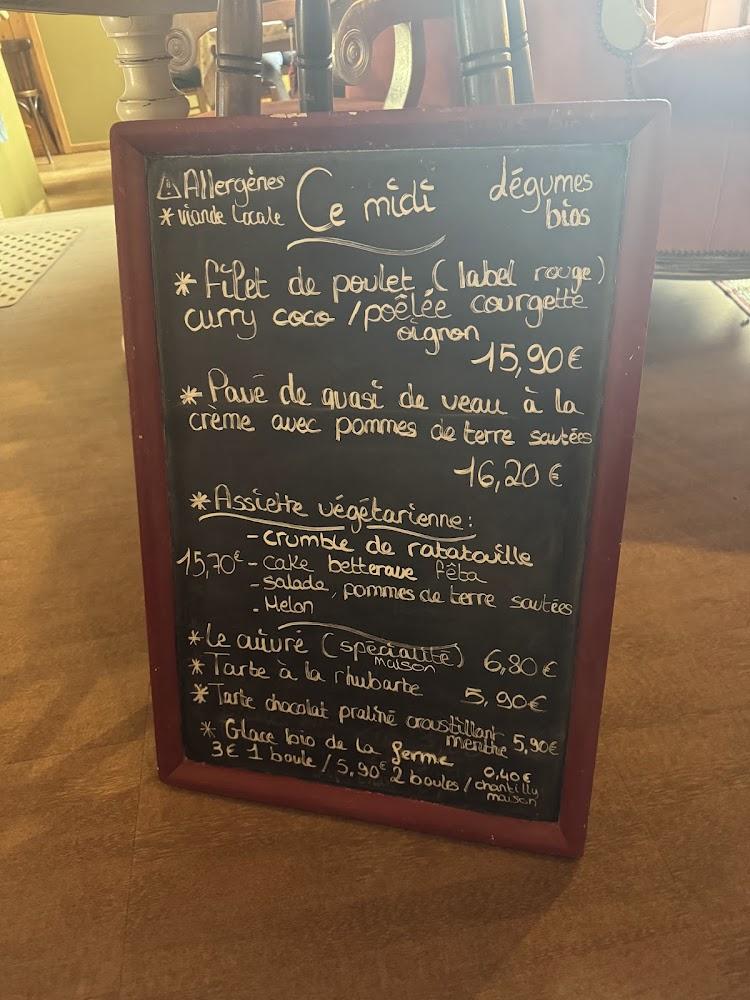 ⚠ Allergènes
* viande locale
Ce midi
dégumes
bios
* Filet de poulet (label rouge)
curry coco / poêlée courgette
oignon
15,90€
* Pavé de quasi de veau à la
crème avec pommes de terre sautées
16,20 €
* Assiette végétarienne:
- crumble de ratatouille
15,70€ - cake betterave fêta
- salade, pommes de terre sautées
- Melon
* Le cuivré (spécialité) 6,80€
maison
* Tarte à la rhubarbe 5,90€
* Tarte chocolat praliné croustillant
menthe 5,90€
* Glace bio de la ferme
3€ 1 boule / 5,90€ 2 boules / 0,40€
chantilly
maison